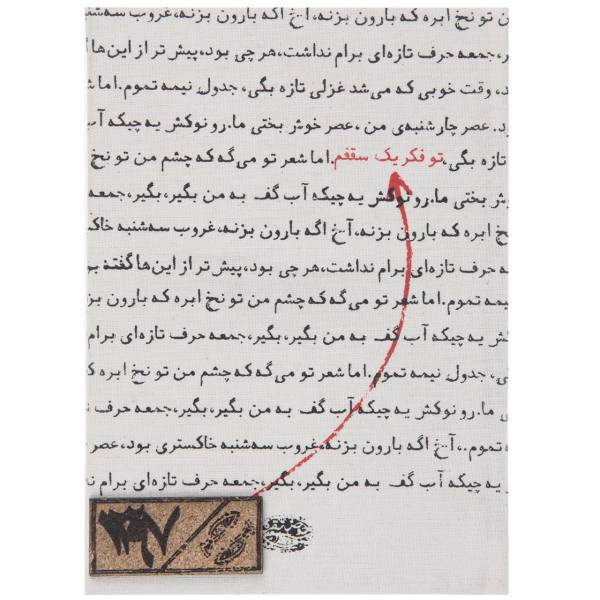 ن تو نخ ابره که بارون بزنه، آخ اگه بارون بزنه، غروب سه‌شنبه
، جمعه حرف تازه‌ای برام نداشت، هر چی بود، پیش‌تر از این‌ها
د، وقت خوبی که می‌شد غزلی تازه بگی، جدول نیمه تموم. اما ش
د. عصر چارشنبه‌ی من، عصر خوش بختی ما. رو نوکش یه چیکه آب
تازه بگی، تو فکر یک سقفم. اما شعر تو می‌گه که چشم من تو نخ
ش بختی ما. رو نوکش یه چیکه آب گف به من بگیر، بگیر، جمعه
خ ابره که بارون بزنه، آخ اگه بارون بزنه، غروب سه‌شنبه خاکس
جمعه حرف تازه‌ای برام نداشت، هر چی بود، پیش‌تر از این‌ها گفته بر
یمه تموم. اما شعر تو می‌گه که چشم من تو نخ ابره که بارون بز
ش یه چیکه آب گف به من بگیر، بگیر، جمعه حرف تازه‌ای برام
ی، جدول نیمه تموم. اما شعر تو می‌گه که چشم من تو نخ ابره ک
ی ما. رو نوکش یه چیکه آب گف به من بگیر، بگیر، جمعه حرف
ه تموم.، آخ اگه بارون بزنه، غروب سه‌شنبه خاکستری بود، عصر
یه چیکه آب گف به من بگیر، بگیر، جمعه حرف تازه‌ای برام نداش